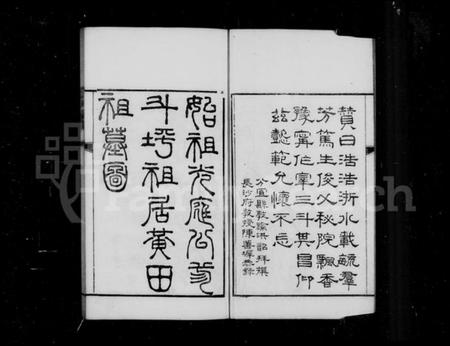 贊曰浩浩浙水載毓羣
芳篤生俊乂秘院飄香
豫寧作宰三斗其昌仰
茲懿範允懷不忘
分宜縣教諭洪韶拜撰
長沙府教授陳
始祖光庭公
斗塆祖居黃田
祖墓圖